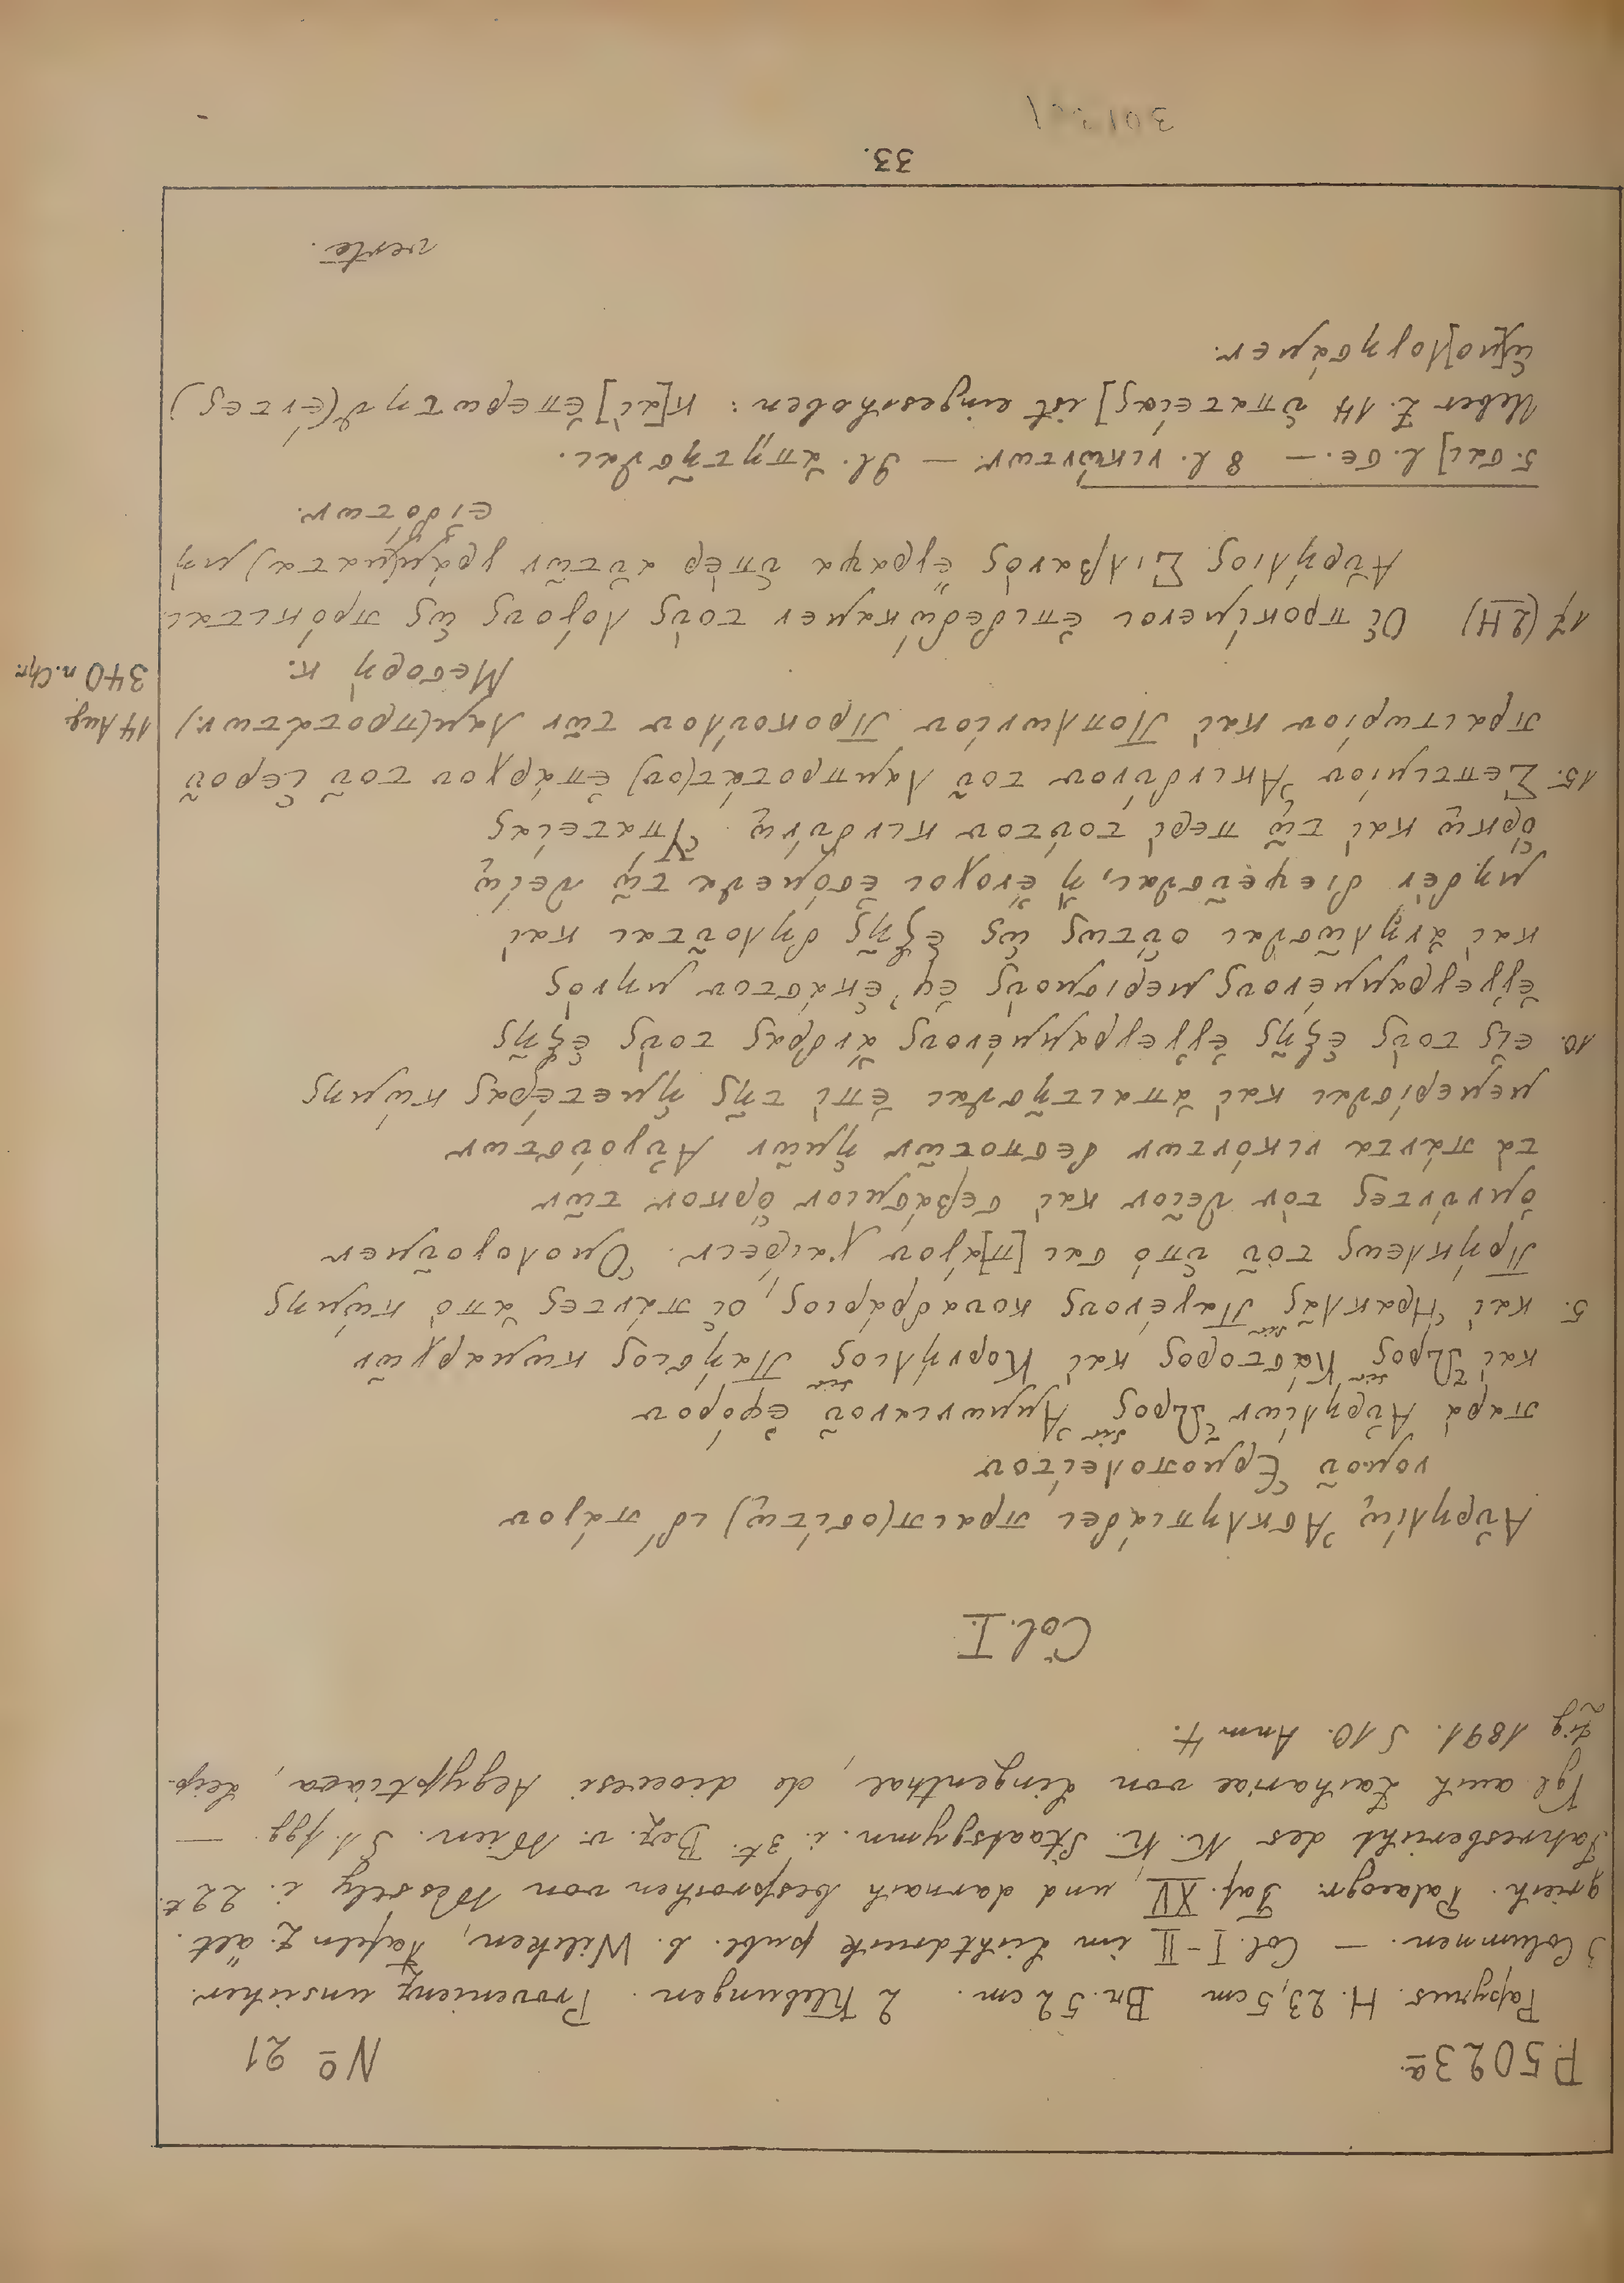 P. 5023a. No 21
Papyrus. H. 23,5 cm Br. 52 cm. 2 Klebungen. Provenienz unsicher.
3 Columnen. — Col. I-II im Lichtdruck publ. b. Wilcken, Tafeln z. ält.
griech. Palaeogr. Taf. XV, und darnach besprochen von Wessely i. 22t.
Jahresbericht des K. K. Staatsgymn. i. 3t. Bez. v. Wien. S 1. fgg. —
Vgl auch Zachariae von Lingenthal, de dioecesi Aegyptiaca, Leip-
zig 1891. S 10. Anm 4.
Col. I.
Αὐρηλίῳ Ἀσκληπιάδει πραιπ(οσίτῳ) ιδ´ πάγου
νομοῦ Ἑρμοπολείτου
παρὰ Αὐρηλίων Ὧρος Ἀμμωνιανοῦ ἐφόρου
καὶ Ὧρος Κάστορος καὶ Κορνήλιος Παήσιος κωμαρχῶν
5. καὶ Ἡρακλᾶς Παγένους κουαδράριος, οἱ πάντες ἀπὸ κώμης
Πρήκλεως τοῦ ὑπό σαι [π]άγου χαίρειν. Ὁμολογοῦμεν
ὀμνύντες τὸν θεῖον καὶ σεβάσμιον ὅρκον τῶν
τὰ πάντα νικόντων δεσποτῶν ἡμῶν Αὐγούστων
μεμερίσθαι καὶ ἀπαιτῆσθαι ἐπὶ τῆς ἡμετέρας κώμης
10. εἰς τοὺς ἑξῆς ἐγγεγραμμένους ἄνδρας τοὺς ἑξῆς
ἐγγεγραμμένους μερισμοὺς ἐφ' ἑκάστου μηνὸς
καὶ ἀνηλῶσθαι οὕτως ὡς ἑξῆς δηλοῦται καὶ
μηδὲν διεψεῦσθαι, ἢ ἔνοχοι ἐσόμεθα τῷ θείῳ
ὅρκῳ καὶ τῷ περὶ τούτου κινδύνῳ. Ὑπατείας
15. Σεπτιμίου Ἀκινδύνου τοῦ λαμπροτάτ(ου) ἐπάρχου τοῦ ἱεροῦ
πραιτωρίου καὶ Ποπλωνίου Προκούλου τῶν λαμ(προτάτων.) 14 Aug.
Μεσορὴ κ. 340 n. Chr.
17 (2 H) Οἱ προκίμενοι ἐπιδεδώκαμεν τοὺς λόγους ὡς πρόκιται
Αὐρήλιος Σιλβανὸς ἔγραψα ὑπὲρ αὐτῶν γράμ(ματα) μὴ
εἰδότων.
5. σαι] l. σε. — 8 l. νικώντων. — 9 l. ἀπῃτῆσθαι.
Ueber Z. 14 ὑπατείας] ist eingeschoben: κ[αὶ] ἐπερωτηθ(έντες)
ὡ[μο]λογησάμεν.
verte.
33.